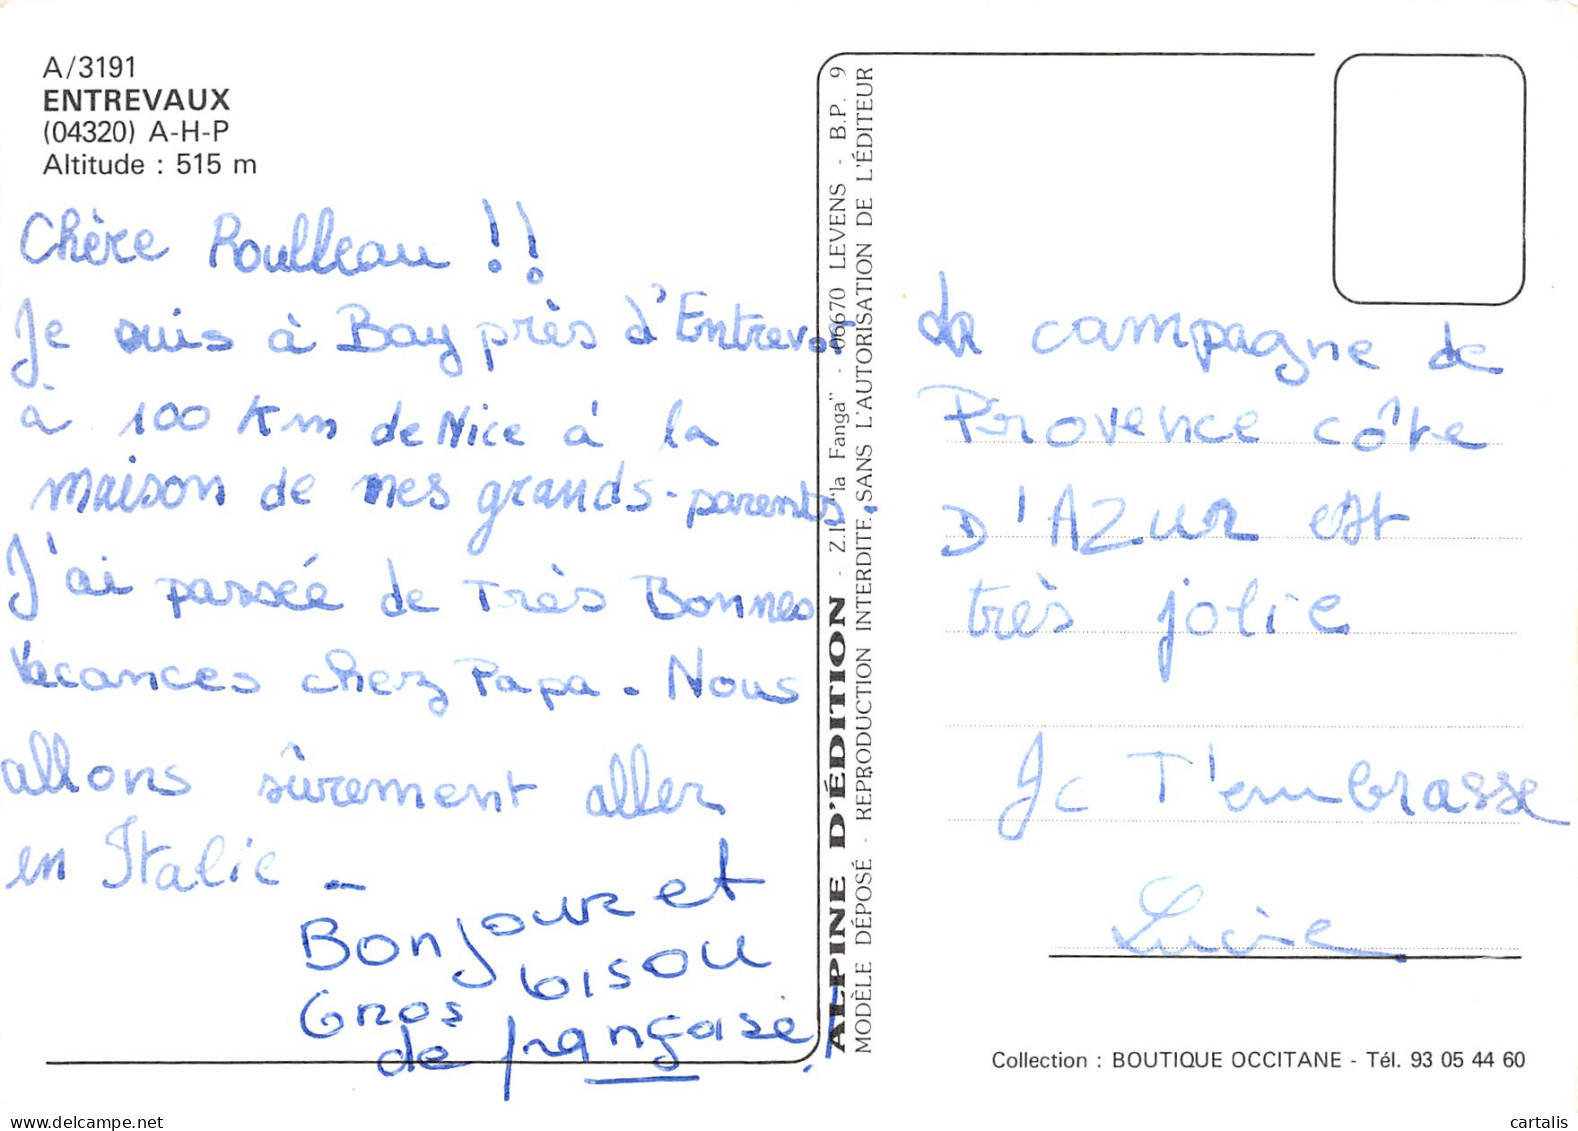 A/3191
ENTREVAUX
(04320) A-H-P
Altitude : 515 m
Chère Roulleau !!
Je suis à Bay près d'Entrevaux
à 100 Km de Nice à la
maison de mes grands-parents.
J'ai passée de Très Bonnes
vacances chez Papa. Nous
allons sûrement aller
en Italie -
Bonjour et
Gros bisou
de françoise !
ALPINE D'ÉDITION - Z.I. "la Fanga" - 06670 LEVENS - B.P. 9
MODÈLE DÉPOSÉ - REPRODUCTION INTERDITE SANS L'AUTORISATION DE L'ÉDITEUR
La campagne de
Provence côte
D'AZUR est
très jolie
Je T'embrasse
Lucie
Collection : BOUTIQUE OCCITANE - Tél. 93 05 44 60
cartalis.com